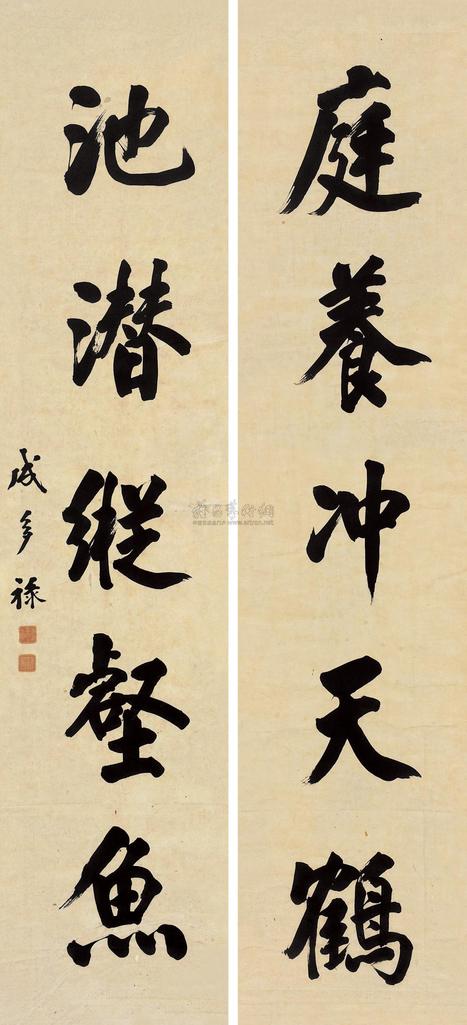 庭養冲天鶴
池潛縱壑魚
成多祿
www.artron.net